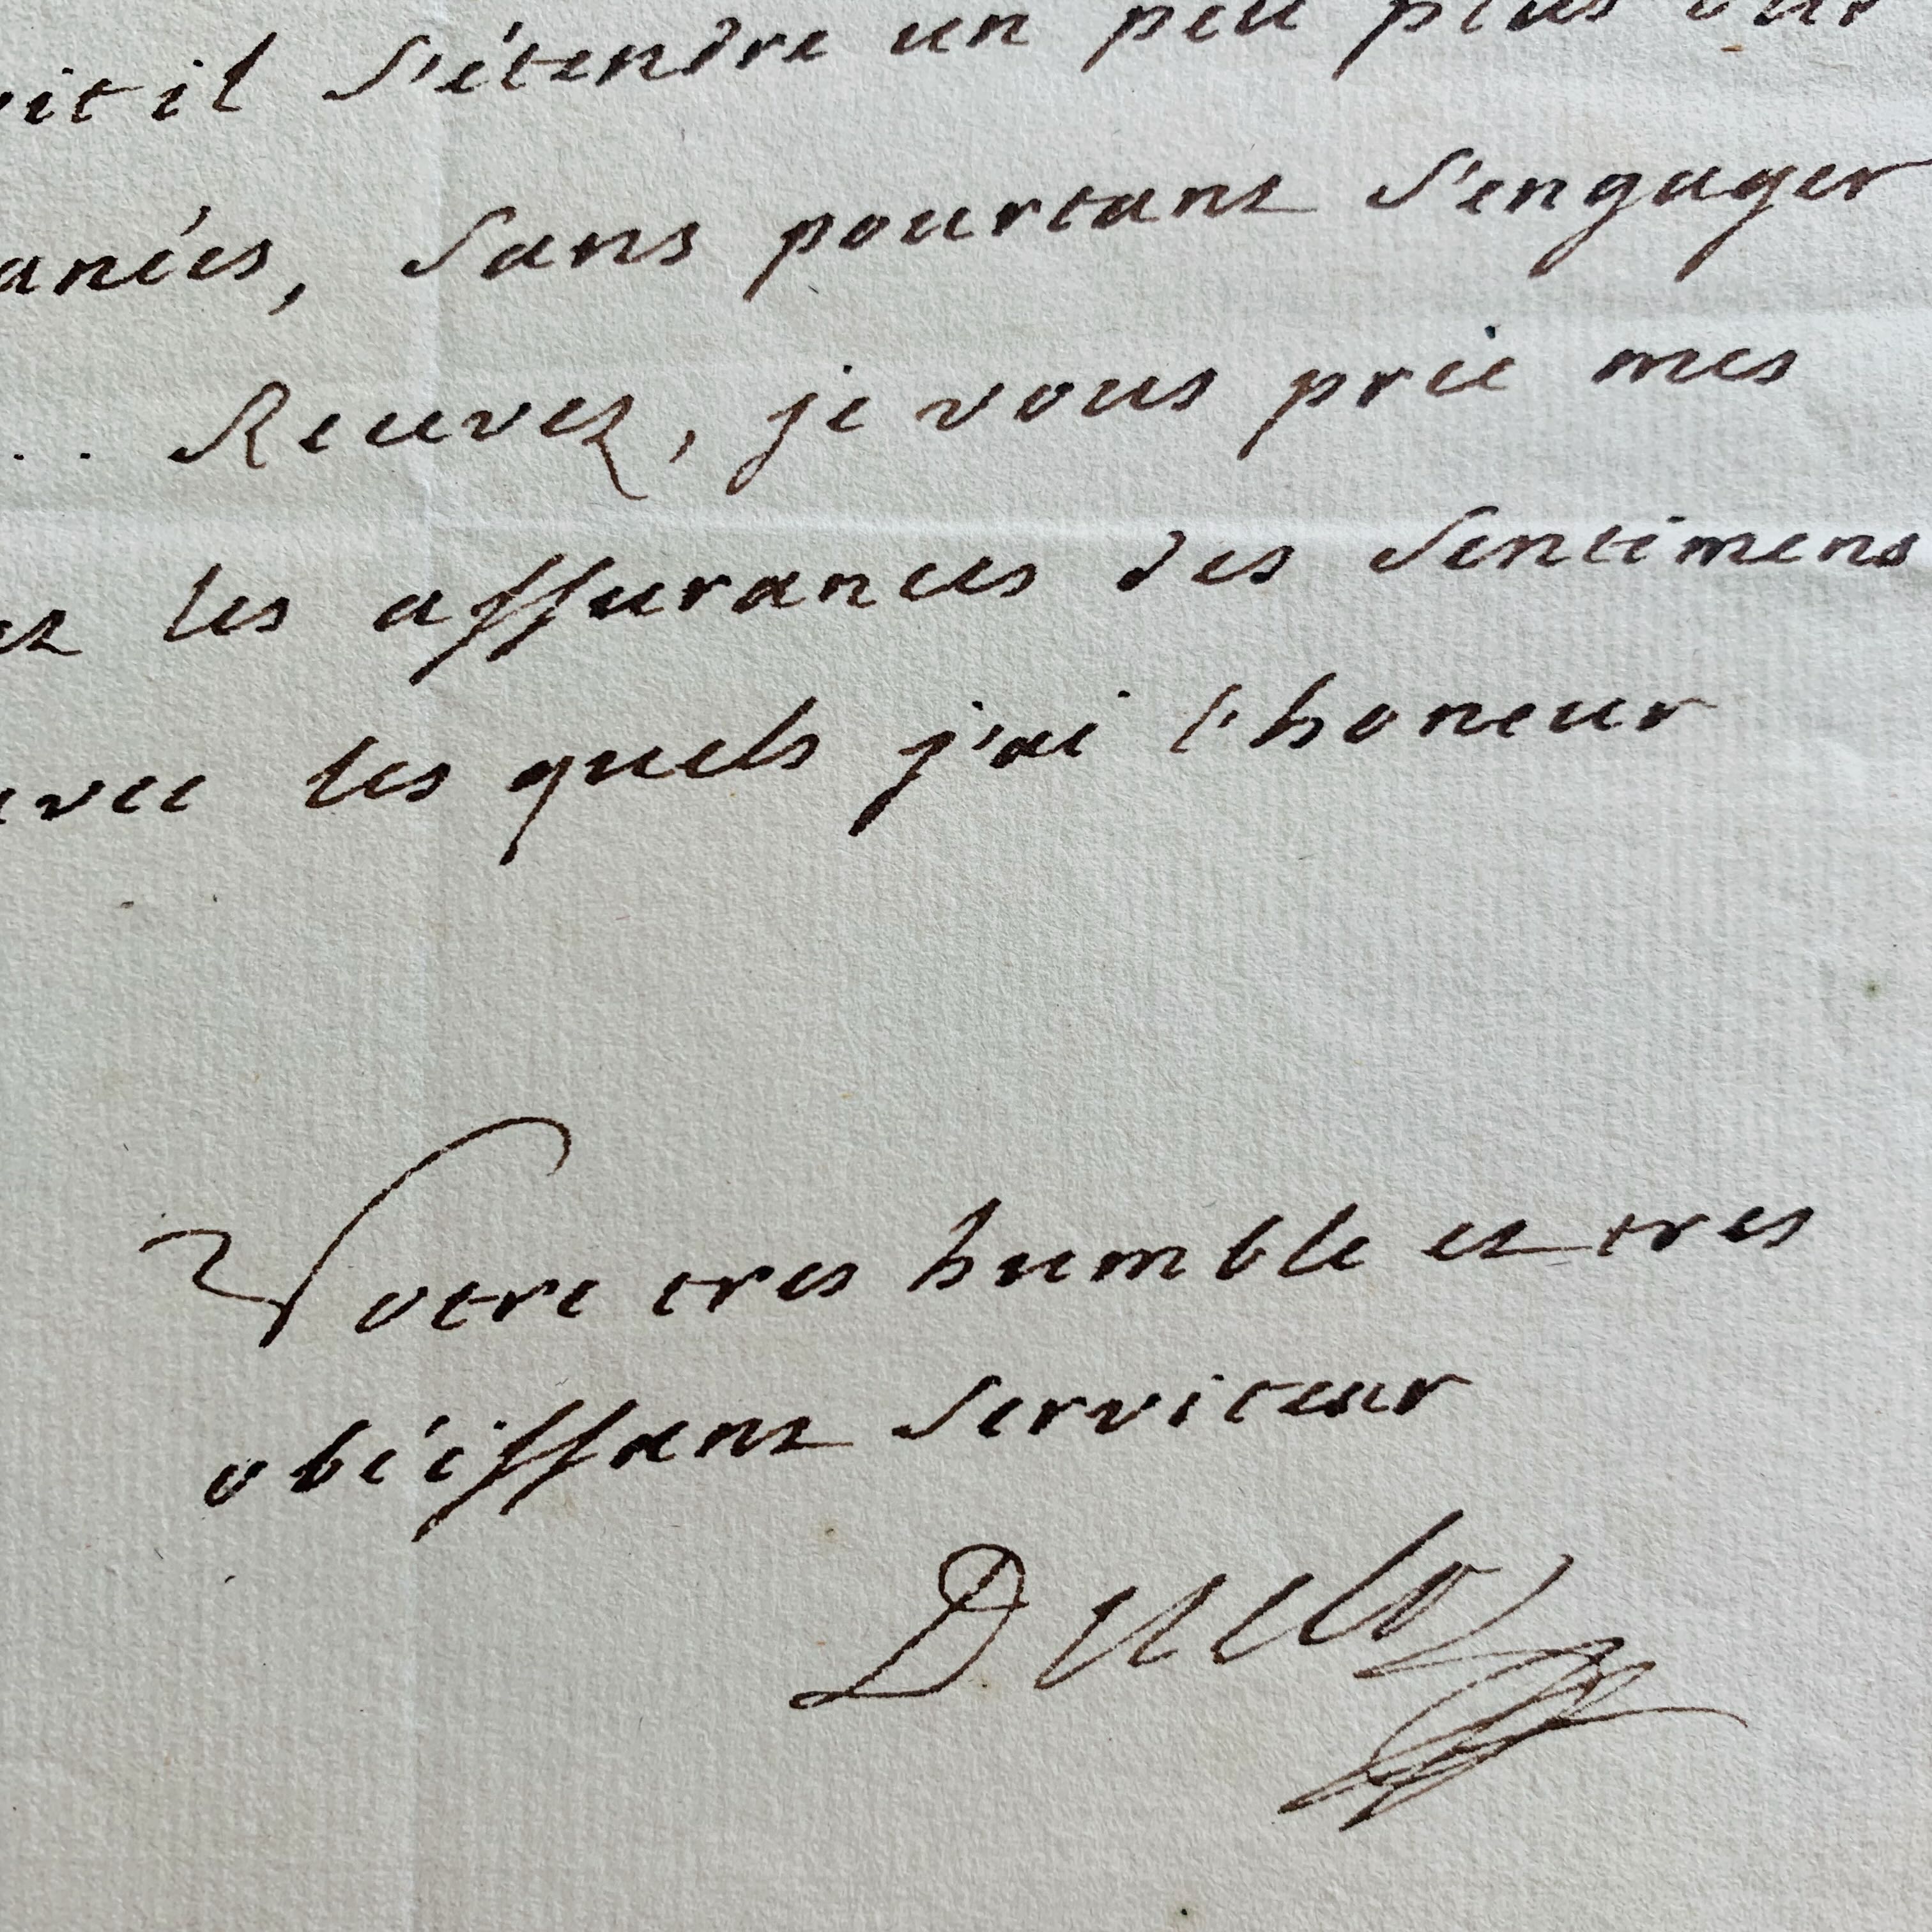 oit il s'étendre un peu plus sur
anées, sans pourtant s'engager
.. Recevez, je vous prie mes
et les assurances des sentimens
avec les quels j'ai l'honeur
Votre tres humble et tres
obéissant serviteur
Duclos